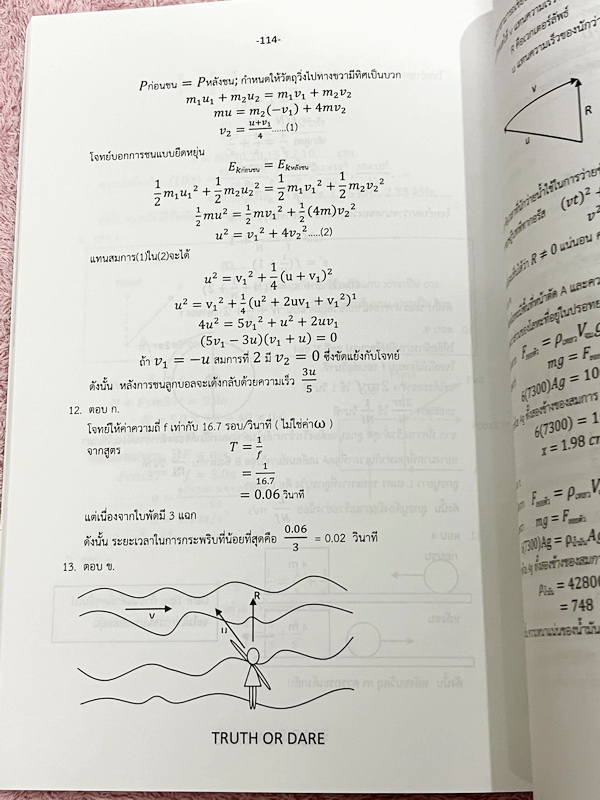 -114-
Pก่อนชน = Pหลังชน; กำหนดให้วัตถุวิ่งไปทางขวามีทิศเป็นบวก
m₁u₁ + m₂u₂ = m₁v₁ + m₂v₂
mu = m₂(−v₁) + 4mv₂
v₂ = (u+v₁)/4 .....(1)
โจทย์บอกการชนแบบยืดหยุ่น
Eₖก่อนชน = Eₖหลังชน
1/2 m₁u₁² + 1/2 m₂u₂² = 1/2 m₁v₁² + 1/2 m₂v₂²
1/2 mu² = 1/2 mv₁² + 1/2 (4m)v₂²
u² = v₁² + 4v₂² .....(2)
แทนสมการ(1)ใน(2)จะได้
u² = v₁² + 1/4 (u + v₁)²
u² = v₁² + 1/4 (u² + 2uv₁ + v₁²)¹
4u² = 5v₁² + u² + 2uv₁
(5v₁ − 3u)(v₁ + u) = 0
ถ้า v₁ = −u สมการที่ 2 มี v₂ = 0 ซึ่งขัดแย้งกับโจทย์
ดังนั้น หลังการชนลูกบอลจะเด้งกลับด้วยความเร็ว 3u/5
12. ตอบ ก.
โจทย์ให้ค่าความถี่ f เท่ากับ 16.7 รอบ/วินาที ( ไม่ใช่ค่าω )
จากสูตร T = 1/f
= 1/16.7
= 0.06 วินาที
แต่เนื่องจากใบพัดมี 3 แฉก
ดังนั้น ระยะเวลาในการกระพริบที่น้อยที่สุดคือ 0.06/3 = 0.02 วินาที
13. ตอบ ข.
v
u
R
TRUTH OR DARE
R คือเวกเตอร์ลัพธ์
v
R
u
(vt)²
R ≠ 0 แน่นอน
mg = F
6(7300)Ag = 10
6(7300) = 1
x = 1.98 cm
mg = F
= 42800
= 748